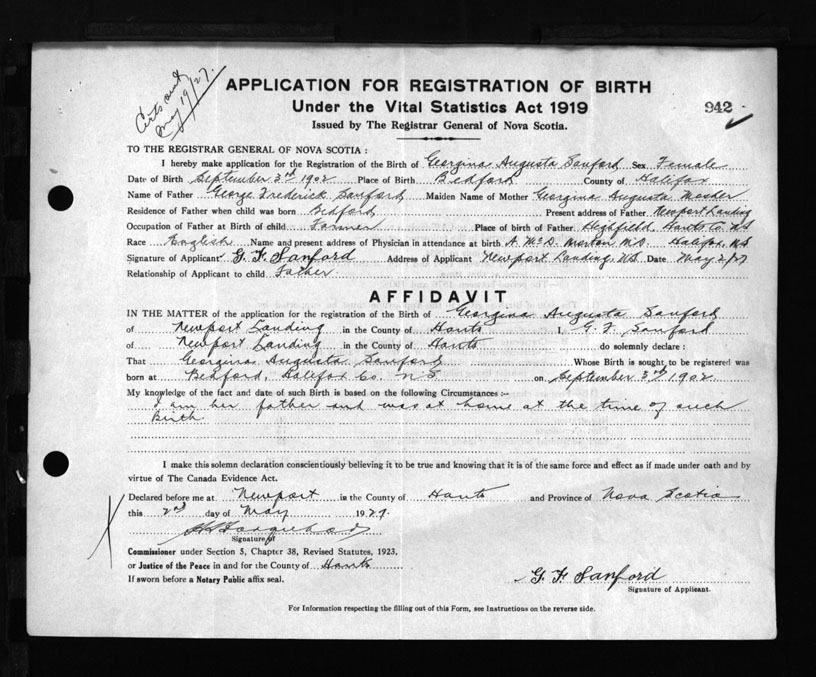 Certs sent
May 19/27.
APPLICATION FOR REGISTRATION OF BIRTH
Under the Vital Statistics Act 1919
942
Issued by The Registrar General of Nova Scotia.
TO THE REGISTRAR GENERAL OF NOVA SCOTIA :
I hereby make application for the Registration of the Birth of Georgina Augusta Sanford Sex Female
Date of Birth September 3rd 1902 Place of Birth Bedford County of Halifax
Name of Father George Frederick Sanford Maiden Name of Mother Georgina Augusta Mosher
Residence of Father when child was born Bedford Present address of Father Newport Landing
Occupation of Father at Birth of child Farmer Place of birth of Father Highfield Hants Co. NS
Race English Name and present address of Physician in attendance at birth A. McD. Morton M.D. Halifax, NS
Signature of Applicant G. F. Sanford Address of Applicant Newport Landing, NS Date May 2/27
Relationship of Applicant to child Father
AFFIDAVIT
IN THE MATTER of the application for the registration of the Birth of Georgina Augusta Sanford
of Newport Landing in the County of Hants I, G. F. Sanford
of Newport Landing in the County of Hants do solemnly declare :
That Georgina Augusta Sanford Whose Birth is sought to be registered was
born at Bedford, Halifax Co. N.S on September 3rd 1902
My knowledge of the fact and date of such Birth is based on the following Circumstances :-
I am her father and was at home at the time of such
Birth.
I make this solemn declaration conscientiously believing it to be true and knowing that it is of the same force and effect as if made under oath and by
virtue of The Canada Evidence Act.
Declared before me at Newport in the County of Hants and Province of Nova Scotia
this 2nd day of May 1927.
Signature of
Commissioner under Section 5, Chapter 38, Revised Statutes, 1923,
or Justice of the Peace in and for the County of Hants
If sworn before a Notary Public affix seal.
G. F. Sanford
Signature of Applicant.
For Information respecting the filling out of this Form, see Instructions on the reverse side.